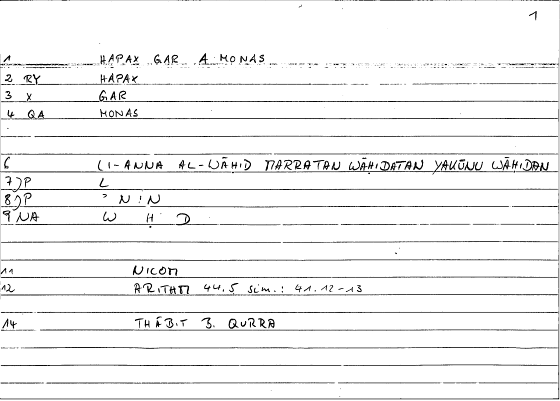 1
1 HAPAX GAR A MONAS
2 RY HAPAX
3 X GAR
4 QA MONAS
6 LI-ANNA AL-WĀḤID MARRATAN WĀḤIDATAN YAKŪNU WĀḤIDAN
7)P L
8)P ' N : N
9 NA W Ḥ D
11 NICOM
12 ARITHM 44.5 sim.: 41.12-13
14 THĀBIT B. QURRA